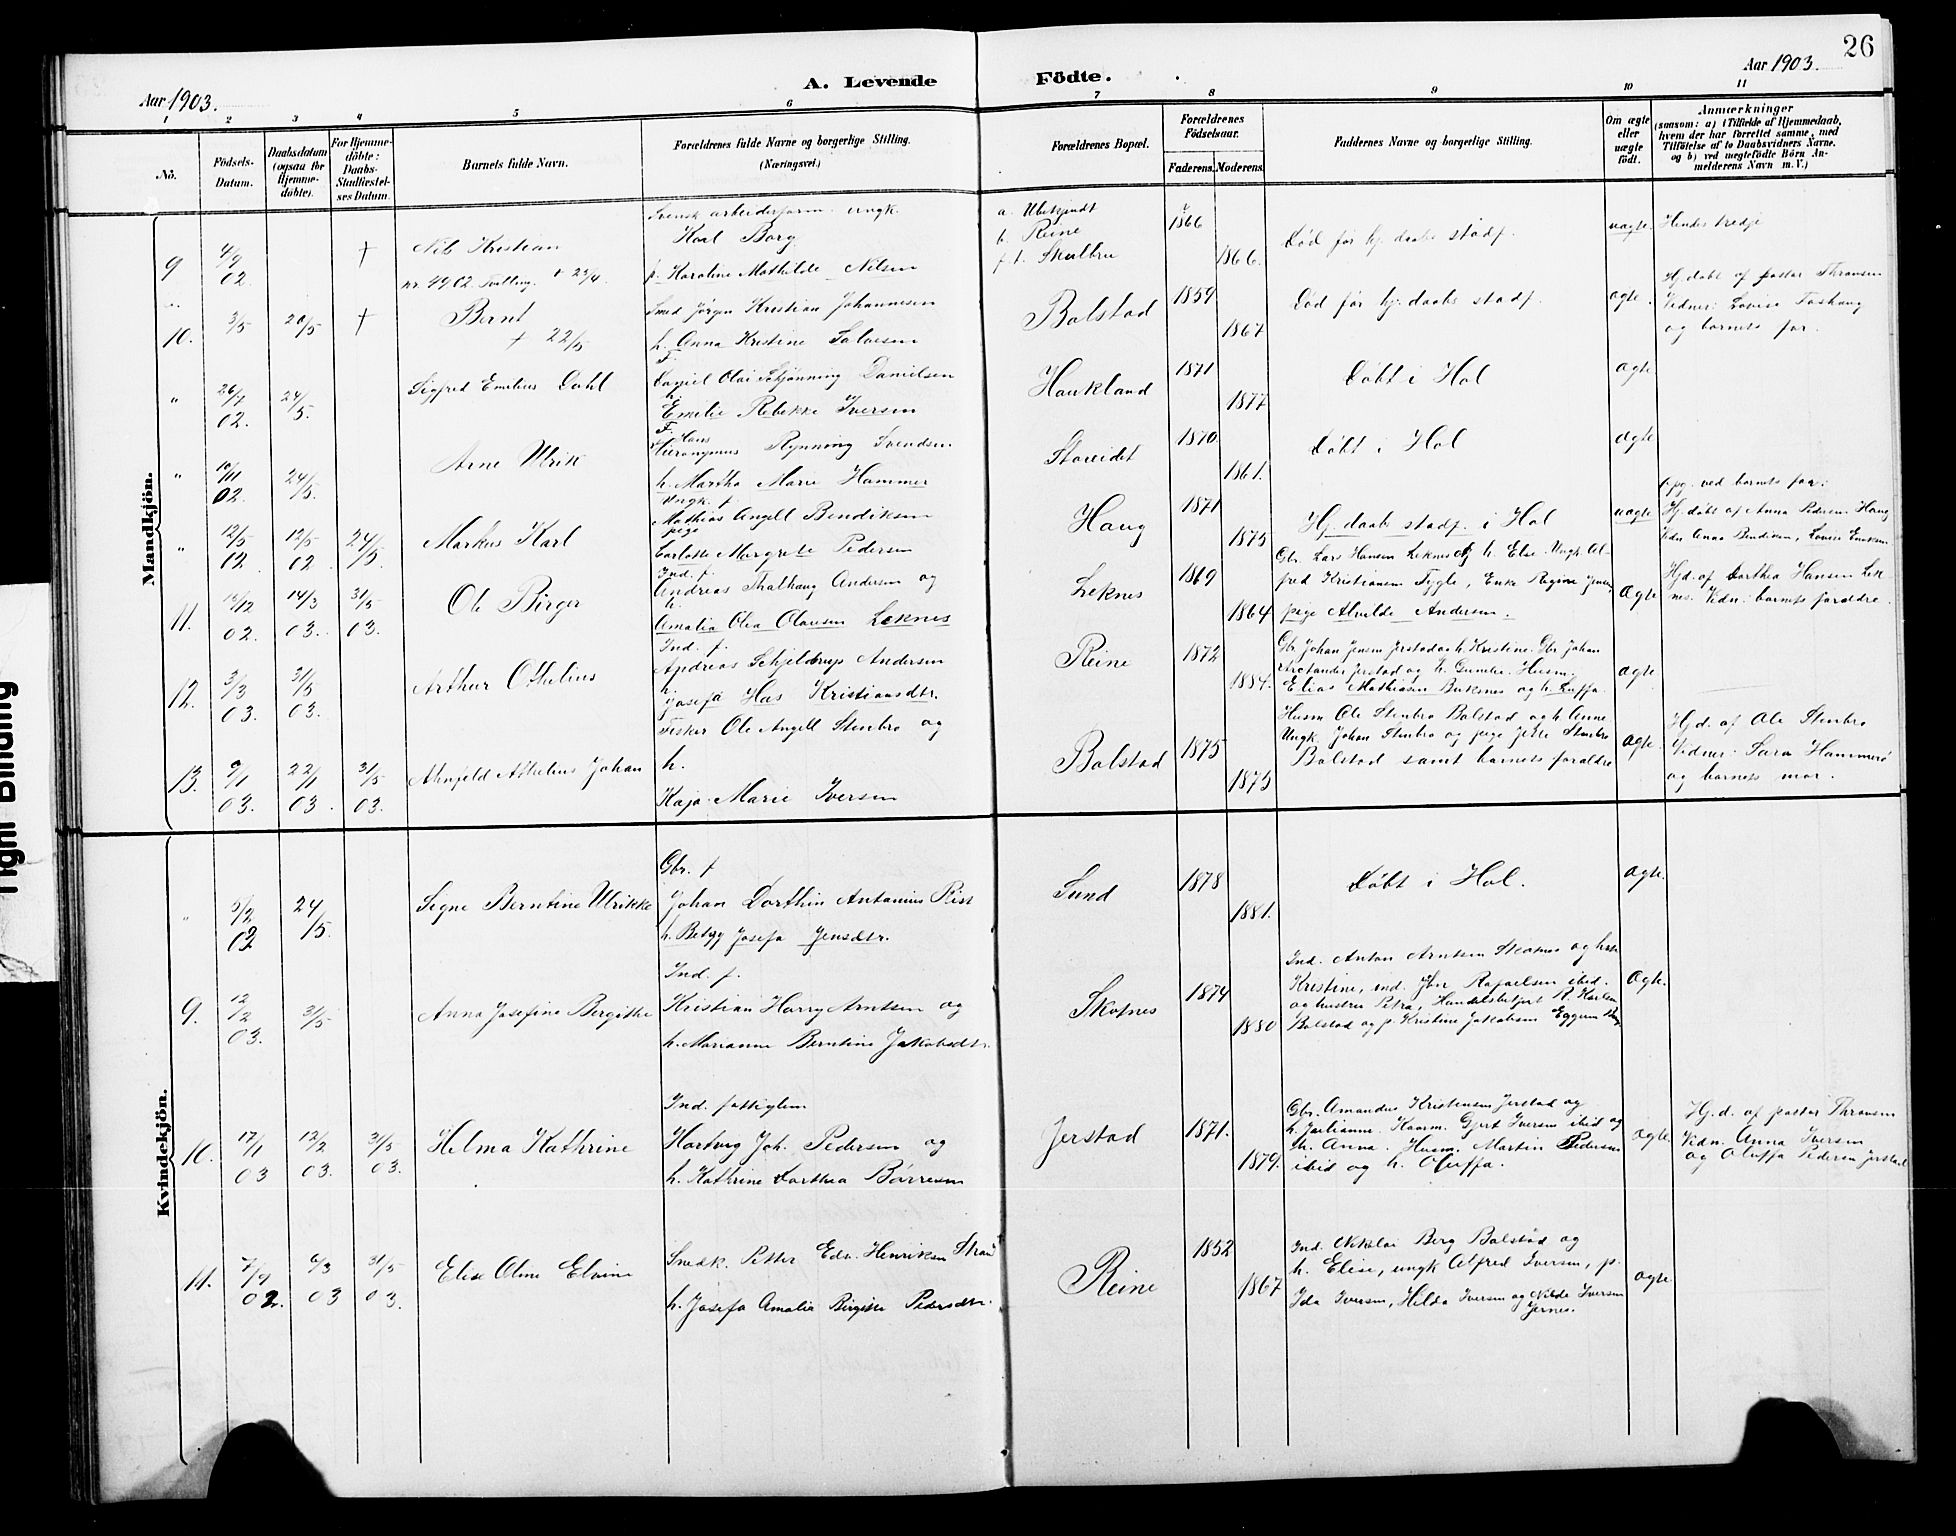 26
Aar 1903.
A. Levende
Födte.
Aar 1903.
1
2
3
4
5
6
7
8
9
10
11
Nö.
Födsels-
Datum.
Daabsdatum
(ogsaa for
Hjemme-
döbte).
For Hjemme-
döbte:
Daabs-
Stadfæstel-
ses Datum.
Barnets fulde Navn.
Forældrenes fulde Navne og borgerlige Stilling.
(Næringsvei.)
Forældrenes Bopæl.
Forældrenes
Födselsaar.
Faderens.
Moderens.
Faddernes Navne og borgerlige Stilling.
Om ægte
eller
uægte
födt.
Anmærkninger
(saasom: a) i Tilfælde af Hjemmedaab,
hvem der har forrettet samme, med
Tilföielse af to Daabsvidners Navne,
og b) ved uægtefödte Börn An-
melderens Navn m. V.)
Mandkjön.
9
4/9
02.
+
Nils Kristian
nr. 49 02. Tvilling.
Svensk arbeiderform. ungk.
Karl Borg
p. Karoline Mathilde Nilsen
a. Ubekjendt
b. Reine
1866
1866.
Död før hj. daabs stadf.
uægte.
Hendes tredje
10.
3/5
20/5
+
Bernt
+ 22/5
Smed Jørgen Kristian Johannesen
h. Anna Kristine Salvesen
Bolstad
1859
1867
Död før hj. daabs stadf.
ægte.
Hj. døbt af pastor Thraasen
Vidner: Lovise
og barnets far.
"
24/5.
02.
Sigfred Emelius Dahl
F.
Daniel Olai Schjønning Danielsen
h.
Emilie Rebekke Iversen
Haukland
1871
1877
Döbt i Hol
ægte
"
10/11
02.
24/5.
Arne Ulrik
F. Hans
Hieronymus Rynning Svendsen
h. Martha Marie Hammer
Storeidet
1870.
1861.
Döbt i Hol
ægte
"
12/5
02
12/5
02.
24/5.
Markus Karl
Ungk. f.
Mathias Angell Bendiksen
pige
Carlotte Margrete Pedersen
Haug
1871
1875
Hj. daabs stadf. i Hol
uægte
Opg. ved barnets far:
Hj. døbt af Anna Pedersen Haug
Vidn. Anna Bendiksen, Lovise
11.
02.
14/3
03.
31/5
03.
Ole Birger
Ind. f.
Andreas Thalhaug Andersen og
h.
Amalia Olea Olausen Leknes
Leknes
1869
1864
Gbr. Lars Hansen Leknes og h. Else. Ungk. Al-
fred Kristiansen Fygle, Enke Regine
pige Alvilde Andersen.
ægte
Hjd. af Dorthea Hansen Lek
nes. Vidn: barnets forældre.
12.
3/3
03.
31/5
03.
Arthur Othelius
Ind. f.
Andreas Schjeldrup Andersen
h.
Josefa Has Kristiansdtr.
Reine
1872
1884.
Gbr. Johan Jensen Jerstad og h. Kristine. Gbr. Johan
Arctander Jerstad og h. Gunelie. Husm.
Elias Mathiasen Buksnes og h. Luffa.
ægte
13.
9/1
03.
22/1
03
31/5
03.
Ahnfeld Athelius Johan
Fisker Ole Angell Stenbro og
h.
Kaja Marie Iversen
Bolstad
1875
1875
Husm. Ole Stenbro Bolstad og h. Anne
Ungk. Johan Stenbro og pige Stenbro
Bolstad samt barnets forældre
ægte.
Hjd. af Ole Stenbro
Vidner: Sara Hammerø
og barnets mor.
Kvindekjön.
"
5/2
02
24/5.
Signe Berntine Ulrikke
Gbr. f
Johan Dorthin Antonius Rist
h. Betzy Josefa Jensdtr.
Sund
1878
1881.
Döbt i Hol.
ægte.
9.
12/2
03.
3/5
Anna Josefine Bergitte
Ind. f.
Kristian Harry Arntsen og
h. Marianne Berntine Jakobsdtr.
Skotnes
1874
1880
Ind. Anton Arntsen Skotnes og
Kristine, ind. Rafaelsen ibid.
og hustru Petra, Handelsbetjent
Bolstad og p. Kristine Jakobsen Eggum
ægte.
10.
17/1
03
12/2
03.
31/5
03.
Helma Kathrine
Ind. fattiglem
Hartvig Joh. Pedersen og
h. Kathrine Dorthea Børresen
Jerstad
1871.
1879.
Gbr. Amandus Kristensen Jerstad og
h. Julianne. Kaarm. Gjert Iversen ibid og
h. Anna. Husm. Martin Pedersen
ibid og h. Oluffa.
ægte.
Hj.d. af pastor Thraasen
Vidn. Anna Iversen
og Oluffa Pedersen Jerstad
11.
7/9
02.
6/3
03
31/5
03.
Elise Oline Elvine
Snedk. Petter Edv. Henriksen Strand
h. Josefa Amalia Birgitte Pedersdtr.
Reine
1852
1867
Ind. Nikolai Berg Bolstad og
h. Elise, ungk Alfred Iversen, p.
Ida Iversen, Hilda Iversen og Nilde Iversen
Jernes.
ægte
Tight Binding